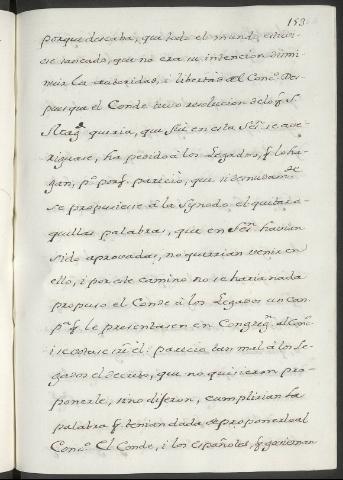 153
porque deseaba, que todo el mundo estuvi-
ese sancado, que no era su intencion dismi-
nuir la autoridad, i libertad del Conc.º Des-
pues que el Conde tuvo resolucion de lo q̃ S.
Mag.d queria, que se en esta Ses.n se ave-
riguase, ha pedido à los Legados, q̃ lo ha-
gan, p.º porq̃ parecio, que si desnudam.te
se propusiese à la Synodo el quitar a-
quellas palabras, que en Ses.n havian
sido aprovadas, no querrian venir en
ello, i por este camino no se haria nada
propuso el Conde à los Legados un Can.
p.ª q̃ le presentasen en Congreg.n al Conc.º
i se votase sre el: parecio tan mal à los Le-
gados el Decreto, que no quisieron pro-
ponerle, sino dijeron, cumplirian la
palabra q̃ tenian dada de proponerlo al
Conc.º El Conde, i los españoles, q̃